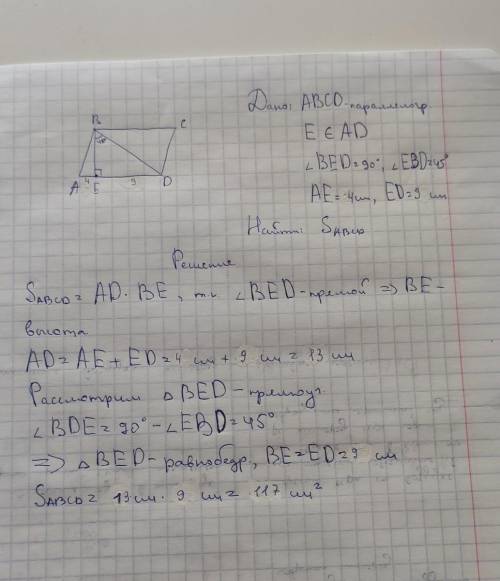 Дано: ABCD-параллелогр.
E ∈ AD
∠BED=90°, ∠EBD=45°
AE=4см, ED=9 см
Найти: SABCD
B
C
45°
A 4 E 9 D
Решение
SABCD= AD · BE, т.к ∠BED-прямой => BE-
высота
AD= AE+ED=4 см + 9 см = 13 см
Рассмотрим △BED-прямоуг.
∠BDE=90°-∠EBD=45°
=> △BED-равнобедр, BE=ED=9 см
SABCD= 13см · 9 см= 117 см²